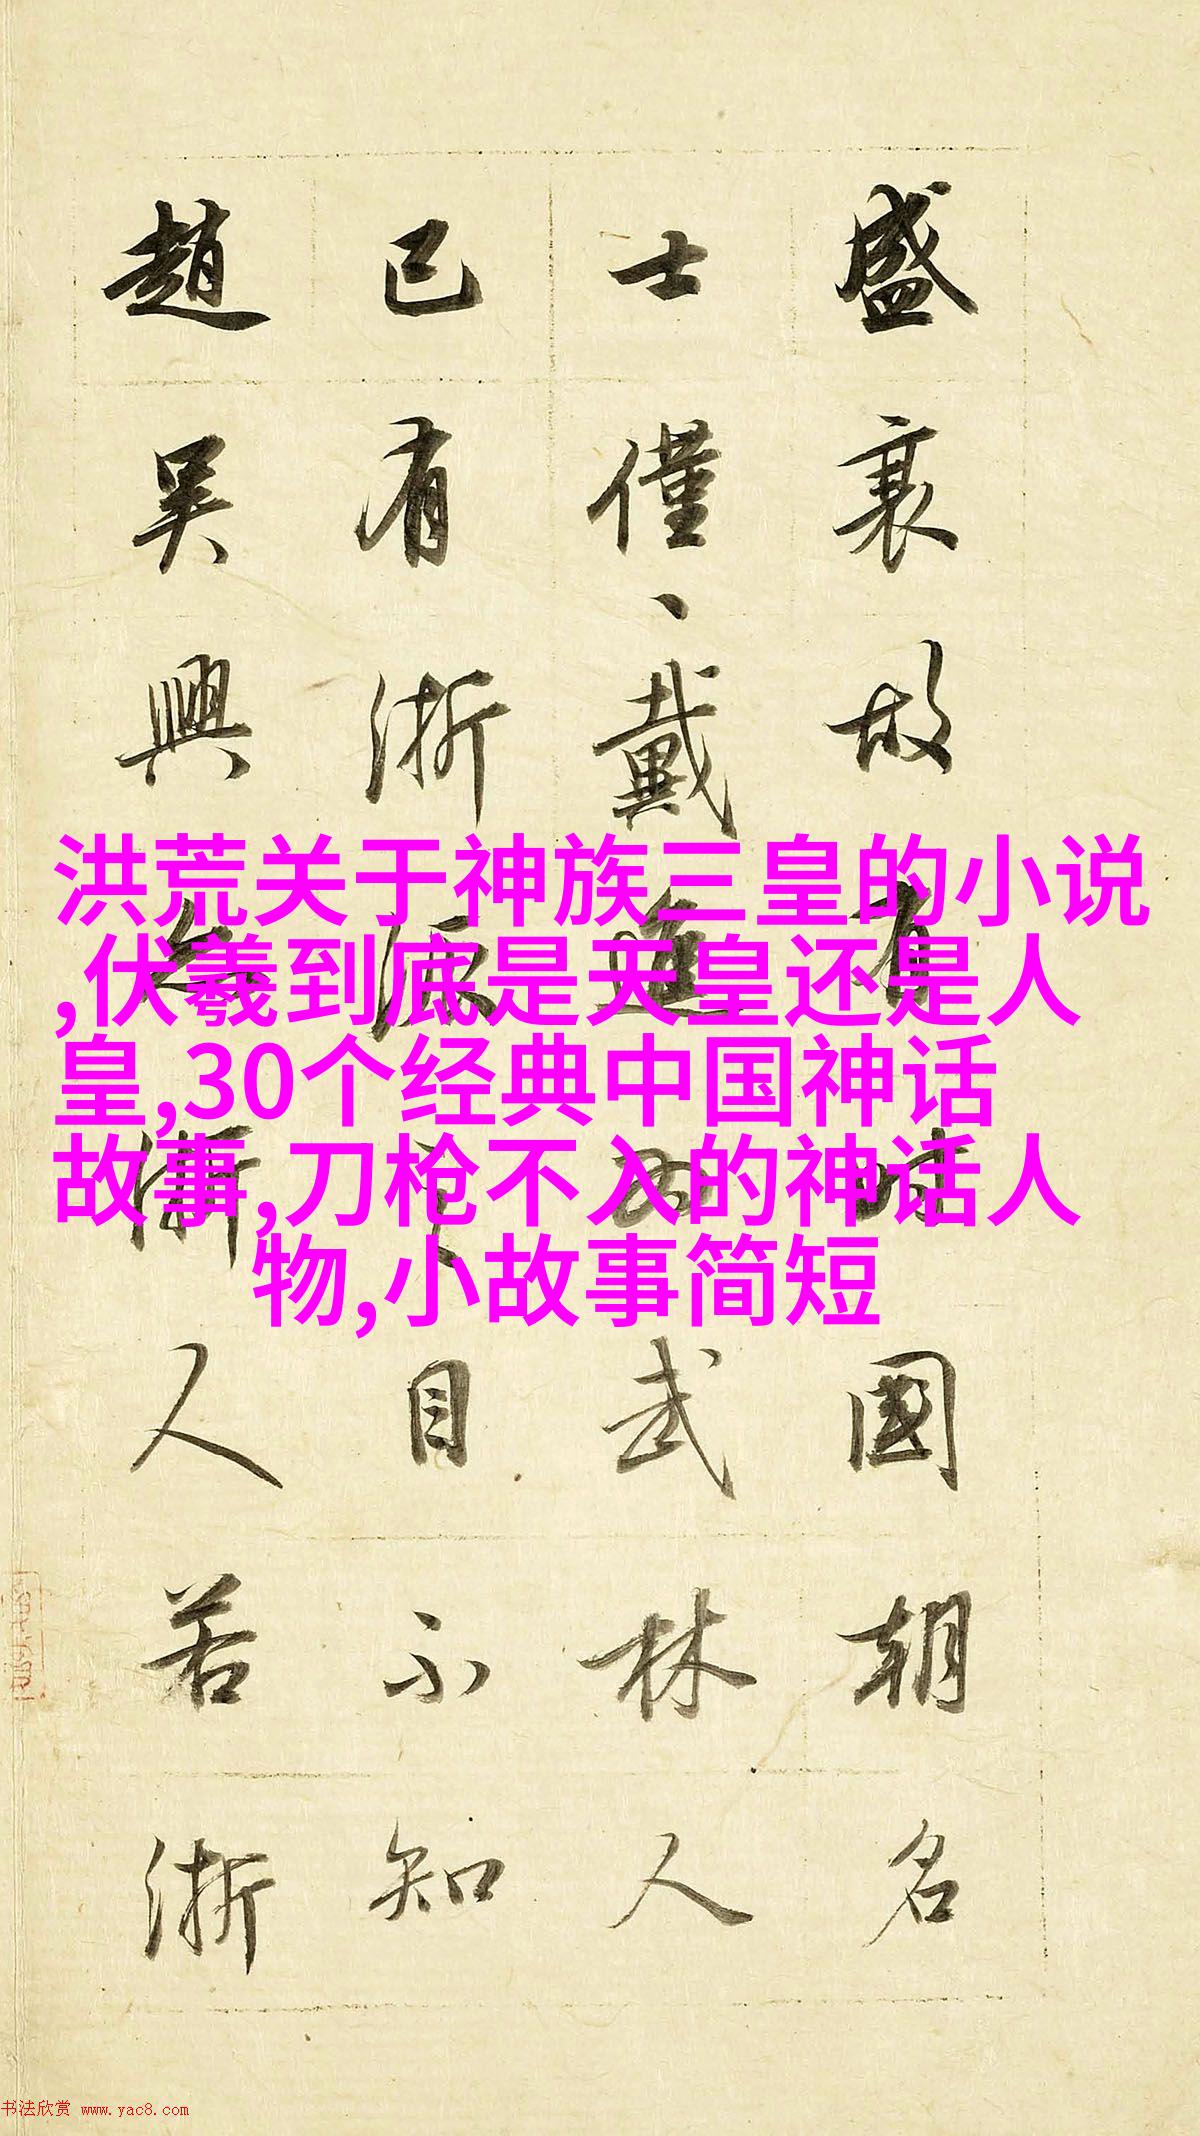 盛衰故有時國朝名
士僅、戴進為武林人
已有浙派之目不知
趙吳興亦浙人若浙
洪荒关于神族三皇的小说
,伏羲到底是天皇还是人
皇,30个经典中国神话
故事,刀枪不入的神话人
物,小故事简短
书法欣赏 www.yac8.com